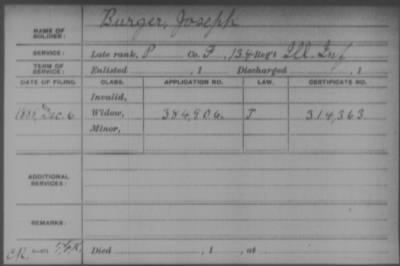 NAME OF SOLDIER: Burger, Joseph
SERVICE: Late rank, P Co. F, 134 Reg't Ill. Inf
TERM OF SERVICE: Enlisted , 1 Discharged , 1
DATE OF FILING. CLASS. APPLICATION NO. LAW. CERTIFICATE NO.
Invalid,
1888, Dec. 6 Widow, 384,906. J 314,363
Minor,
ADDITIONAL SERVICES:
REMARKS:
Died , 1 , at